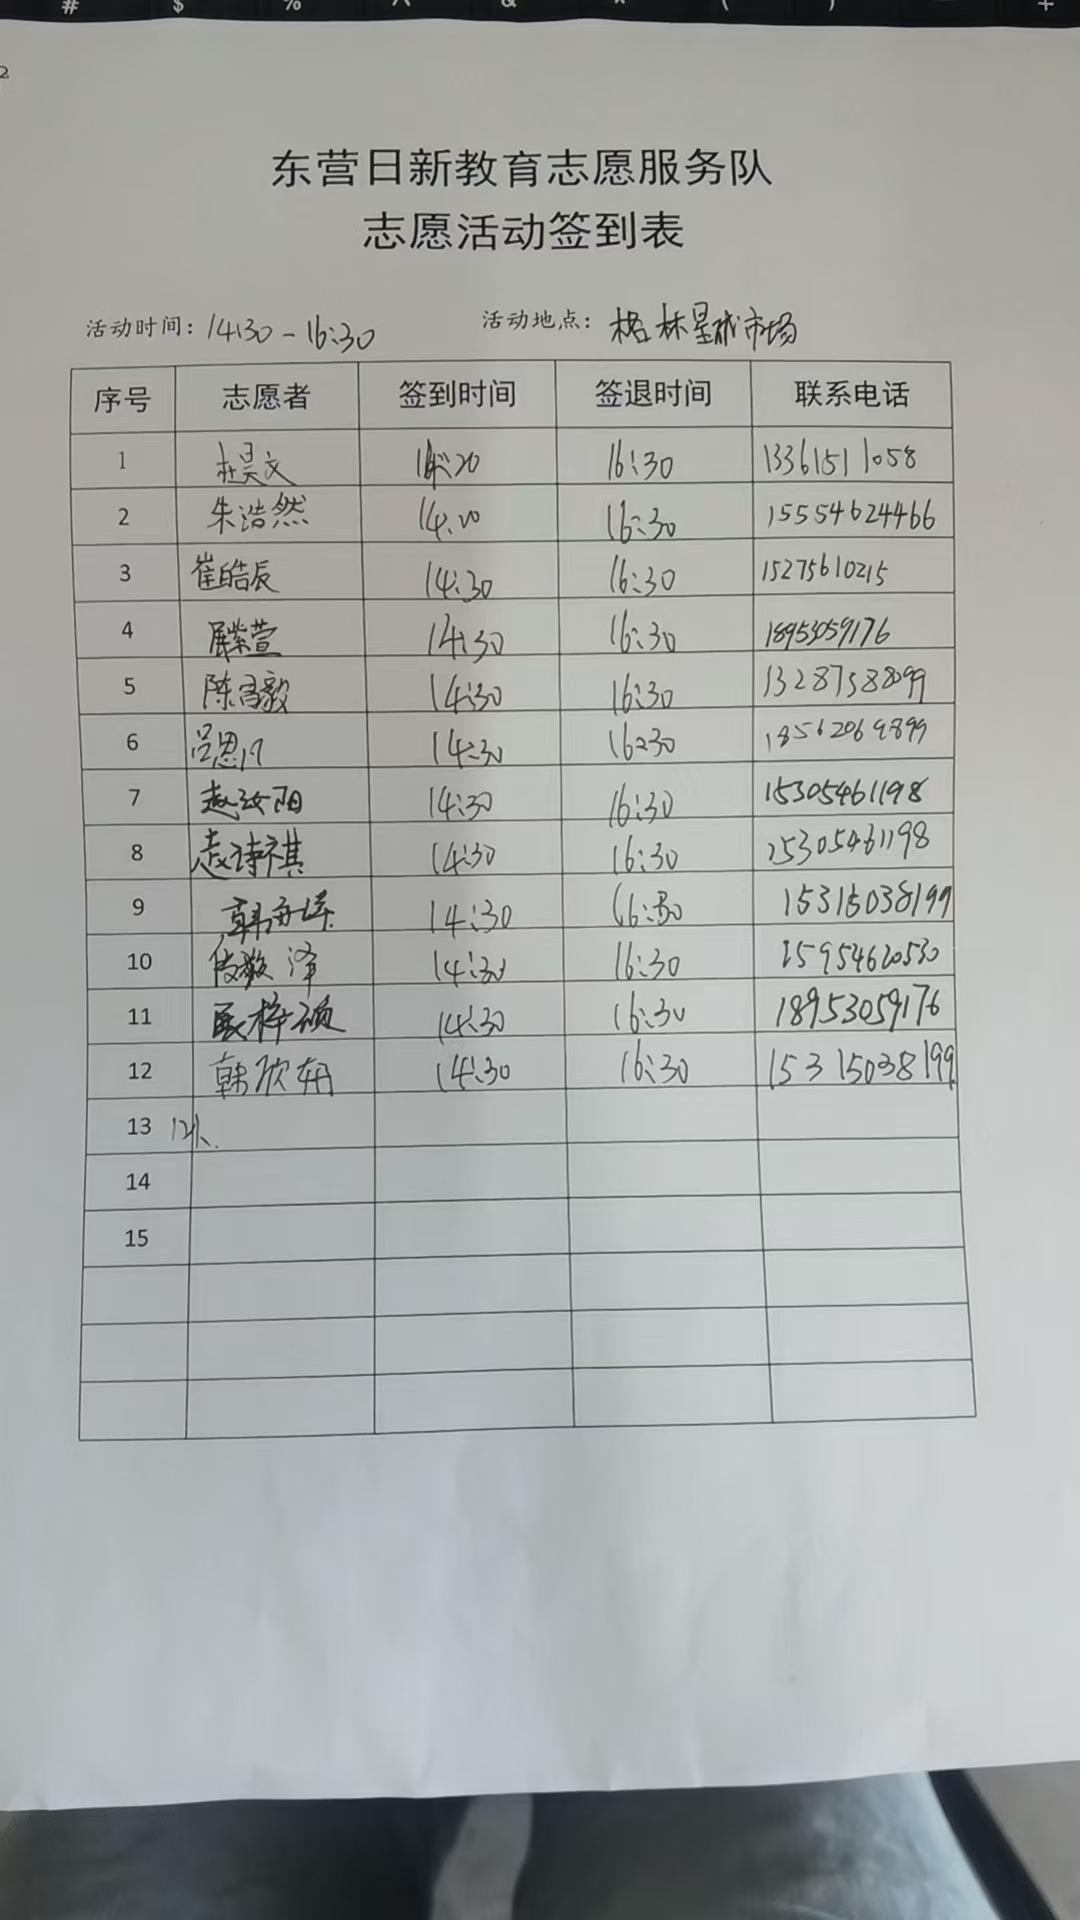 # $ % ^ & * ( ) — +
2
东营日新教育志愿服务队
志愿活动签到表
活动时间：14:30-16:30 活动地点：格林星城市场
序号 志愿者 签到时间 签退时间 联系电话
1 杜昊文 14:20 16:30 13361511058
2 朱浩然 14:20 16:30 15554624466
3 崔皓辰 14:30 16:30 15275610215
4 紫萱 14:30 16:30 18953059176
5 陈毅 14:30 16:30 13287588099
6 吕恩 14:30 16:30 18562069899
7 赵汝阳 14:30 16:30 15305461198
8 诗祺 14:30 16:30 15305461198
9 韩 14:30 16:30 15315038199
10 泽 14:30 16:30 15954620530
11 梓硕 14:30 16:30 18953059176
12 韩欣 14:30 16:30 15315038199
13 12人.
14
15